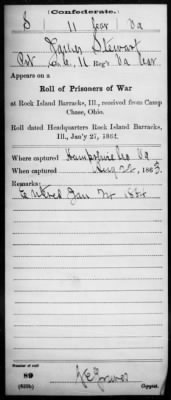 (Confederate.)
S 11 Cav Va
James Stewart
Pvt Co. C, 11 Reg't Va Cav.
Appears on a
Roll of Prisoners of War
at Rock Island Barracks, Ill., received from Camp
Chase, Ohio.
Roll dated Headquarters Rock Island Barracks,
Ill., Jan'y 21, 1864.
Where captured Hampshire Co Va
When captured Aug 22, 1863.
Remarks:
Entered Jan 24 1864
Number of roll
89
(639b) Copyist.